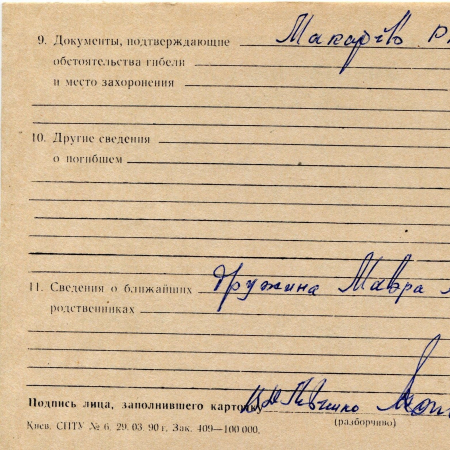 9. Документы, подтверждающие Макарово
обстоятельства гибели
и место захоронения
10. Другие сведения
о погибшем
11. Сведения о ближайших дружина Мавра
родственниках
Подпись лица, заполнившего карточку
(разборчиво)
Киев. СПТУ № 6. 29. 03. 90 г. Зак. 409—100 000.